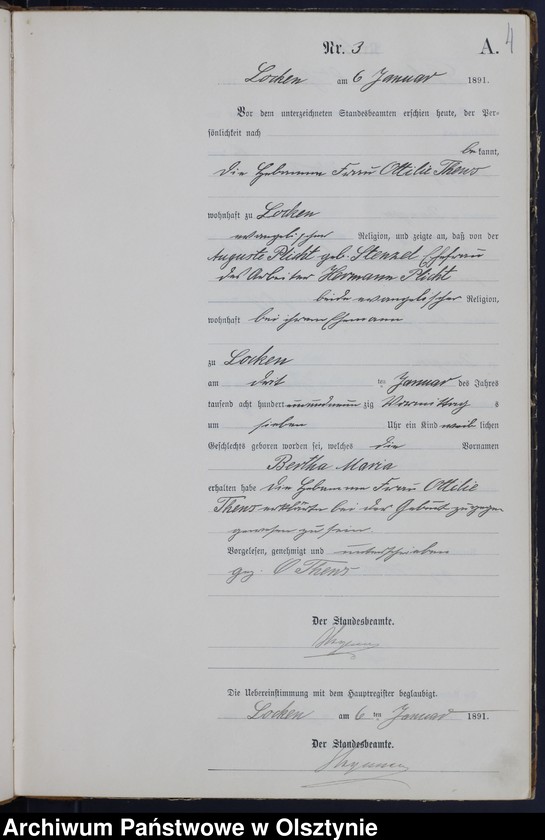 4
Nr. 3
A.
Locken am 6 Januar 1891.
Vor dem unterzeichneten Standesbeamten erschien heute, der Per-
sönlichkeit nach
bekannt,
die Hebamme Frau Ottilie Thews
wohnhaft zu Locken
evangelischer Religion, und zeigte an, daß von der
Auguste Plicht geb. Stenzel Ehefrau
des Arbeiter Hermann Plicht
beide evangelischer Religion,
wohnhaft bei ihrem Ehemann
zu Locken
am drit ten Januar des Jahres
tausend acht hundert einundneun zig Vormittag s
um sieben Uhr ein Kind weib lichen
Geschlechts geboren worden sei, welches die Vornamen
Bertha Maria
erhalten habe Die Hebamme Frau Ottilie
Thews erklärte bei der Geburt zugegen
gewesen zu sein
Vorgelesen, genehmigt und unterschrieben
gez. O Thews
Der Standesbeamte.
Die Uebereinstimmung mit dem Hauptregister beglaubigt.
Locken am 6 ten Januar 1891.
Der Standesbeamte.
Archiwum Państwowe w Olsztynie